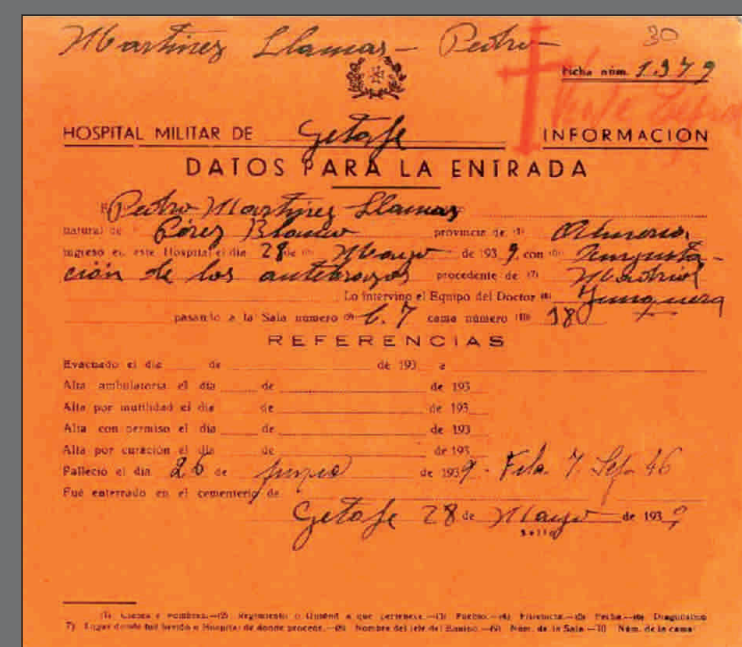 Martinez Llamas - Pedro
30
Ficha núm. 1.379
HOSPITAL MILITAR DE Getafe INFORMACION
DATOS PARA LA ENTRADA
Pedro Martinez Llamas
natural de Pérez Blanco provincia de (4) Almeria
ingresó en este Hospital el día 28 de (5) Mayo de 1939, con (6) Amputa-
ción de los antebrazos procedente de (7) Madrid
Lo intervino el Equipo del Doctor (8) Junquera
pasando a la Sala número (9) C. 7 cama número (10) 18
REFERENCIAS
Evacuado el día de de 193 a
Alta ambulatoria el día de de 193
Alta por inutilidad el día de de 193
Alta con permiso el día de de 193
Alta por curación el día de de 193
Falleció el día 26 de junio de 1939 - Fila 7 Sep. 46
Fué enterrado en el cementerio de
Getafe 28 de Mayo de 1939
Sello
(1) y nombres.—(2) Regimiento o Unidad a que pertenece.—(3) Pueblo.—(4) Provincia.—(5) Fecha.—(6) Diagnóstico
7) Lugar donde fué herido u Hospital de donde procede.—(8) Nombre del jefe del Equipo.—(9) Núm. de la Sala.—10 Núm. de la cama